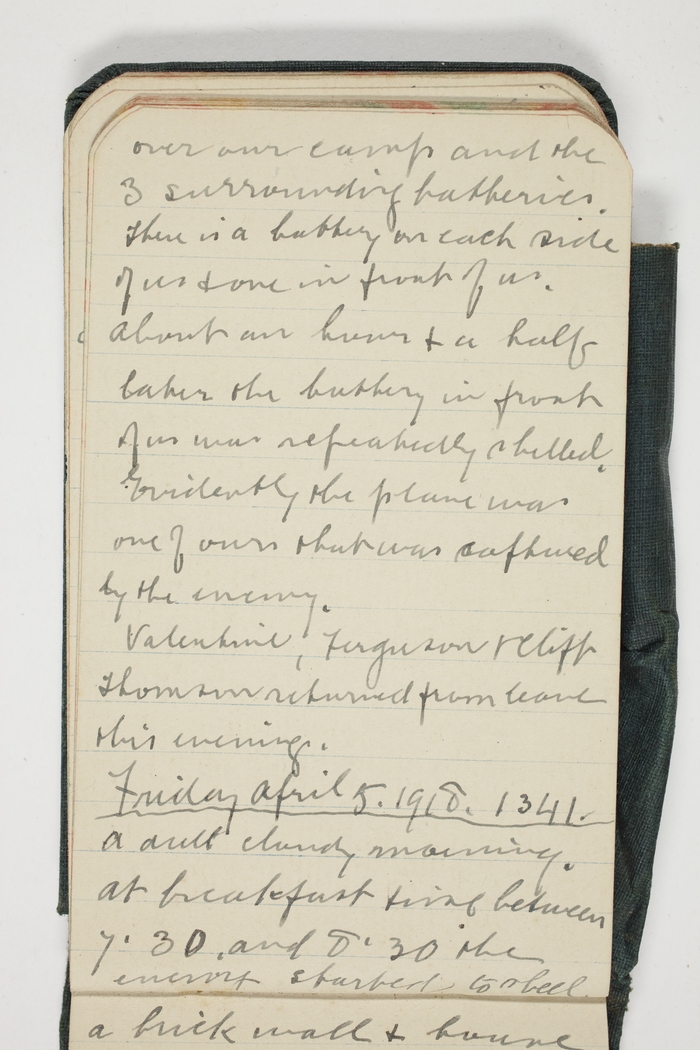 over our camp and the
3 surrounding batteries.
There is a battery on each side
of us & one in front of us.
About an hour & a half
later the battery in front
of us was repeatedly shelled.
Evidently the plane was
one of ours that was captured
by the enemy.
Valentine, Ferguson & Cliff
Thomson returned from leave
this evening.
Friday April 5. 1918. 1341.
A dull cloudy morning.
At breakfast time between
7.30, and 8.30 the
enemy started to shell
a brick wall & house